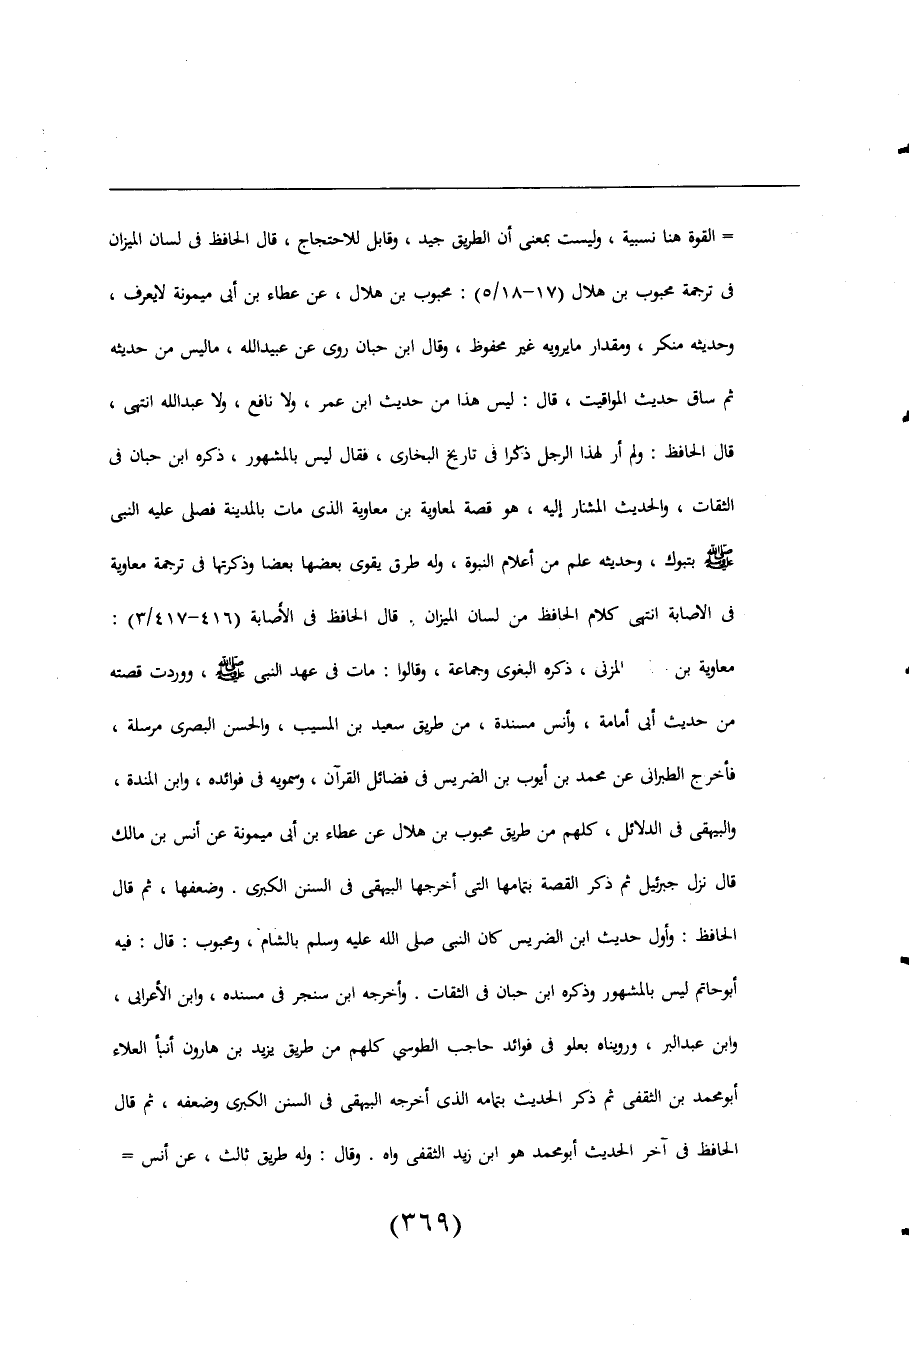 = القوة هنا نسبية ، وليست بمعنى أن الطريق جيد ، وقابل للاحتجاج ، قال الحافظ فى لسان الميزان
فى ترجمة محبوب بن هلال (١٧-٥/١٨) : محبوب بن هلال ، عن عطاء بن أبى ميمونة لايعرف ،
وحديثه منكر ، ومقدار مايرويه غير محفوظ ، وقال ابن حبان روى عن عبيدالله ، ماليس من حديثه
ثم ساق حديث المواقيت ، قال : ليس هذا من حديث ابن عمر ، ولا نافع ، ولا عبدالله انتهى ،
قال الحافظ : ولم أر لهذا الرجل ذكرا فى تاريخ البخارى ، فقال ليس بالمشهور ، ذكره ابن حبان فى
الثقات ، والحديث المشنار إليه ، هو قصة لمعاوية بن معاوية الذى مات بالمدينة فصلى عليه النبى
ﷺ بتبوك ، وحديثه علم من أعلام النبوة ، وله طرق يقوى بعضها بعضا وذكرتها فى ترجمة معاوية
فى الاصابة انتهى كلام الحافظ من لسان الميزان . قال الحافظ فى الأصابة (٤١٦-٣/٤١٧) :
معاوية بن المزنى ، ذكره البغوى وجماعة ، وقالوا : مات فى عهد النبى ﷺ ، ووردت قصته
من حديث أبى أمامة ، وأنس مسندة ، من طريق سعيد بن المسيب ، والحسن البصرى مرسلة ،
فأخرج الطبرانى عن محمد بن أيوب بن الضريس فى فضائل القرآن ، وسمويه فى فوائده ، وابن المندة ،
والبيهقى فى الدلائل ، كلهم من طريق محبوب بن هلال عن عطاء بن أبى ميمونة عن أنس بن مالك
قال نزل جبرئيل ثم ذكر القصة بتمامها التى أخرجها البيهقى فى السنن الكبرى . وضعفها ، ثم قال
الحافظ : وأول حديث ابن الضريس كان النبى صلى الله عليه وسلم بالشام ، ومحبوب : قال : فيه
أبوحاتم ليس بالمشهور وذكره ابن حبان فى الثقات . وأخرجه ابن سنجر فى مسنده ، وابن الأعرابى ،
وابن عبدالبر ، ورويناه بعلو فى فوائد حاجب الطوسي كلهم من طريق يزيد بن هارون أنبأ العلاء
أبومحمد بن الثقفى ثم ذكر الحديث بتمامه الذى أخرجه البيهقى فى السنن الكبرى وضعفه ، ثم قال
الحافظ فى آخر الحديث أبومحمد هو ابن زيد الثقفى واه . وقال : وله طريق ثالث ، عن أنس =
(٣٦٩)